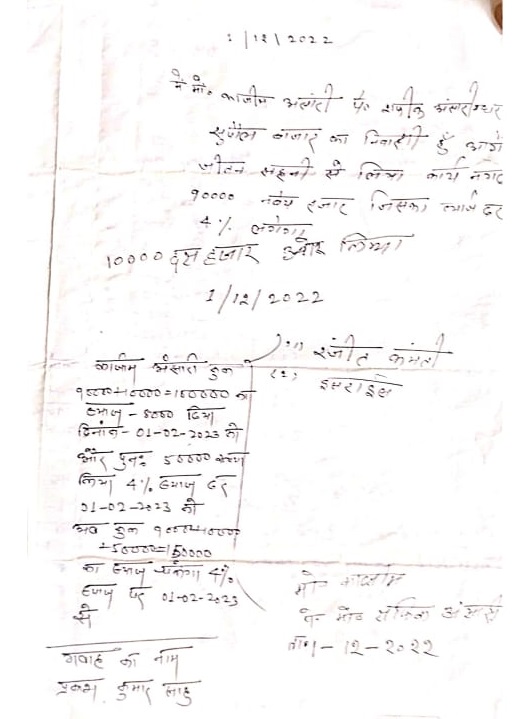 1/12/2022
मै मो० काजीम अंसारी पे० शफीक अंसारी घर
सुपौल बाजार का निवासी हूँ आगे
जीतन सहनी से लिया कार्य नगद
90000 नब्बे हजार जिसका ब्याज दर
4% लगेगा
10000 दस हजार और लिया
1/12/2022
(1) रंजीत कमती
(2) इसराइल
काजीम अंसारी कुल
90000+10000=100000 का
ब्याज - 8000 दिया
दिनांक - 01-02-2023 को
और पुनः 50000
लिया 4% ब्याज दर
01-02-2023 को
अब कुल 90000+10000
+50000=150000
का ब्याज चलेगा 4%
ब्याज पर 01-02-2023
से
मो० काजीम
पे० मो० सफिक अंसारी
ता० 1-12-2022
गवाह का नाम
प्रकाश कुमार साहु